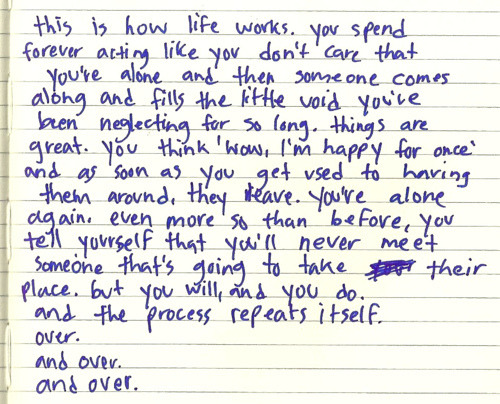 this is how life works. you spend
forever acting like you don't care that
you're alone and then someone comes
along and fills the little void you've
been neglecting for so long. things are
great. you think 'wow, I'm happy for once'
and as soon as you get used to having
them around, they leave. you're alone
again. even more so than before, you
tell yourself that you'll never meet
someone that's going to take their
place. but you will, and you do.
and the process repeats itself.
over.
and over.
and over.